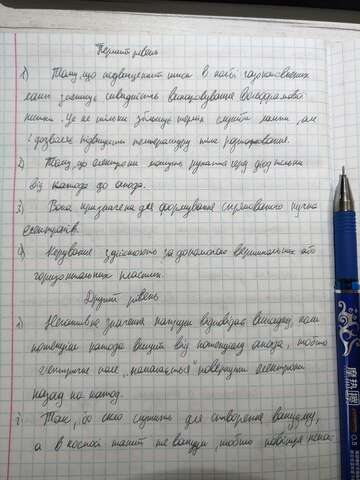 Перший рівень
1) Тому, що підвищений тиск в колбі газонаповнених
ламп зменшує швидкість випаровування вольфрамової
нитки. Це не тільки збільшує термін служби лампи, але
і дозволяє підвищити температуру тіла розжарювання.
2) Тому, що електрони можуть рухатися
від катода до анода.
3) Вона призначена для формування спрямованого пучка
електронів.
4) Керування здійснюють за допомогою вертикальних або
горизонтальних пластин.
Другий рівень
1) Негативне значення напруги відповідає випадку, коли
потенціал катода вищий від потенціалу анода, тобто
електричне поле "намагається" повернути електрони
назад на катод.
2. Так, бо скло служить для створення вакууму,
а в космосі не вакуум, тобто повітря
摩热擦
0.5